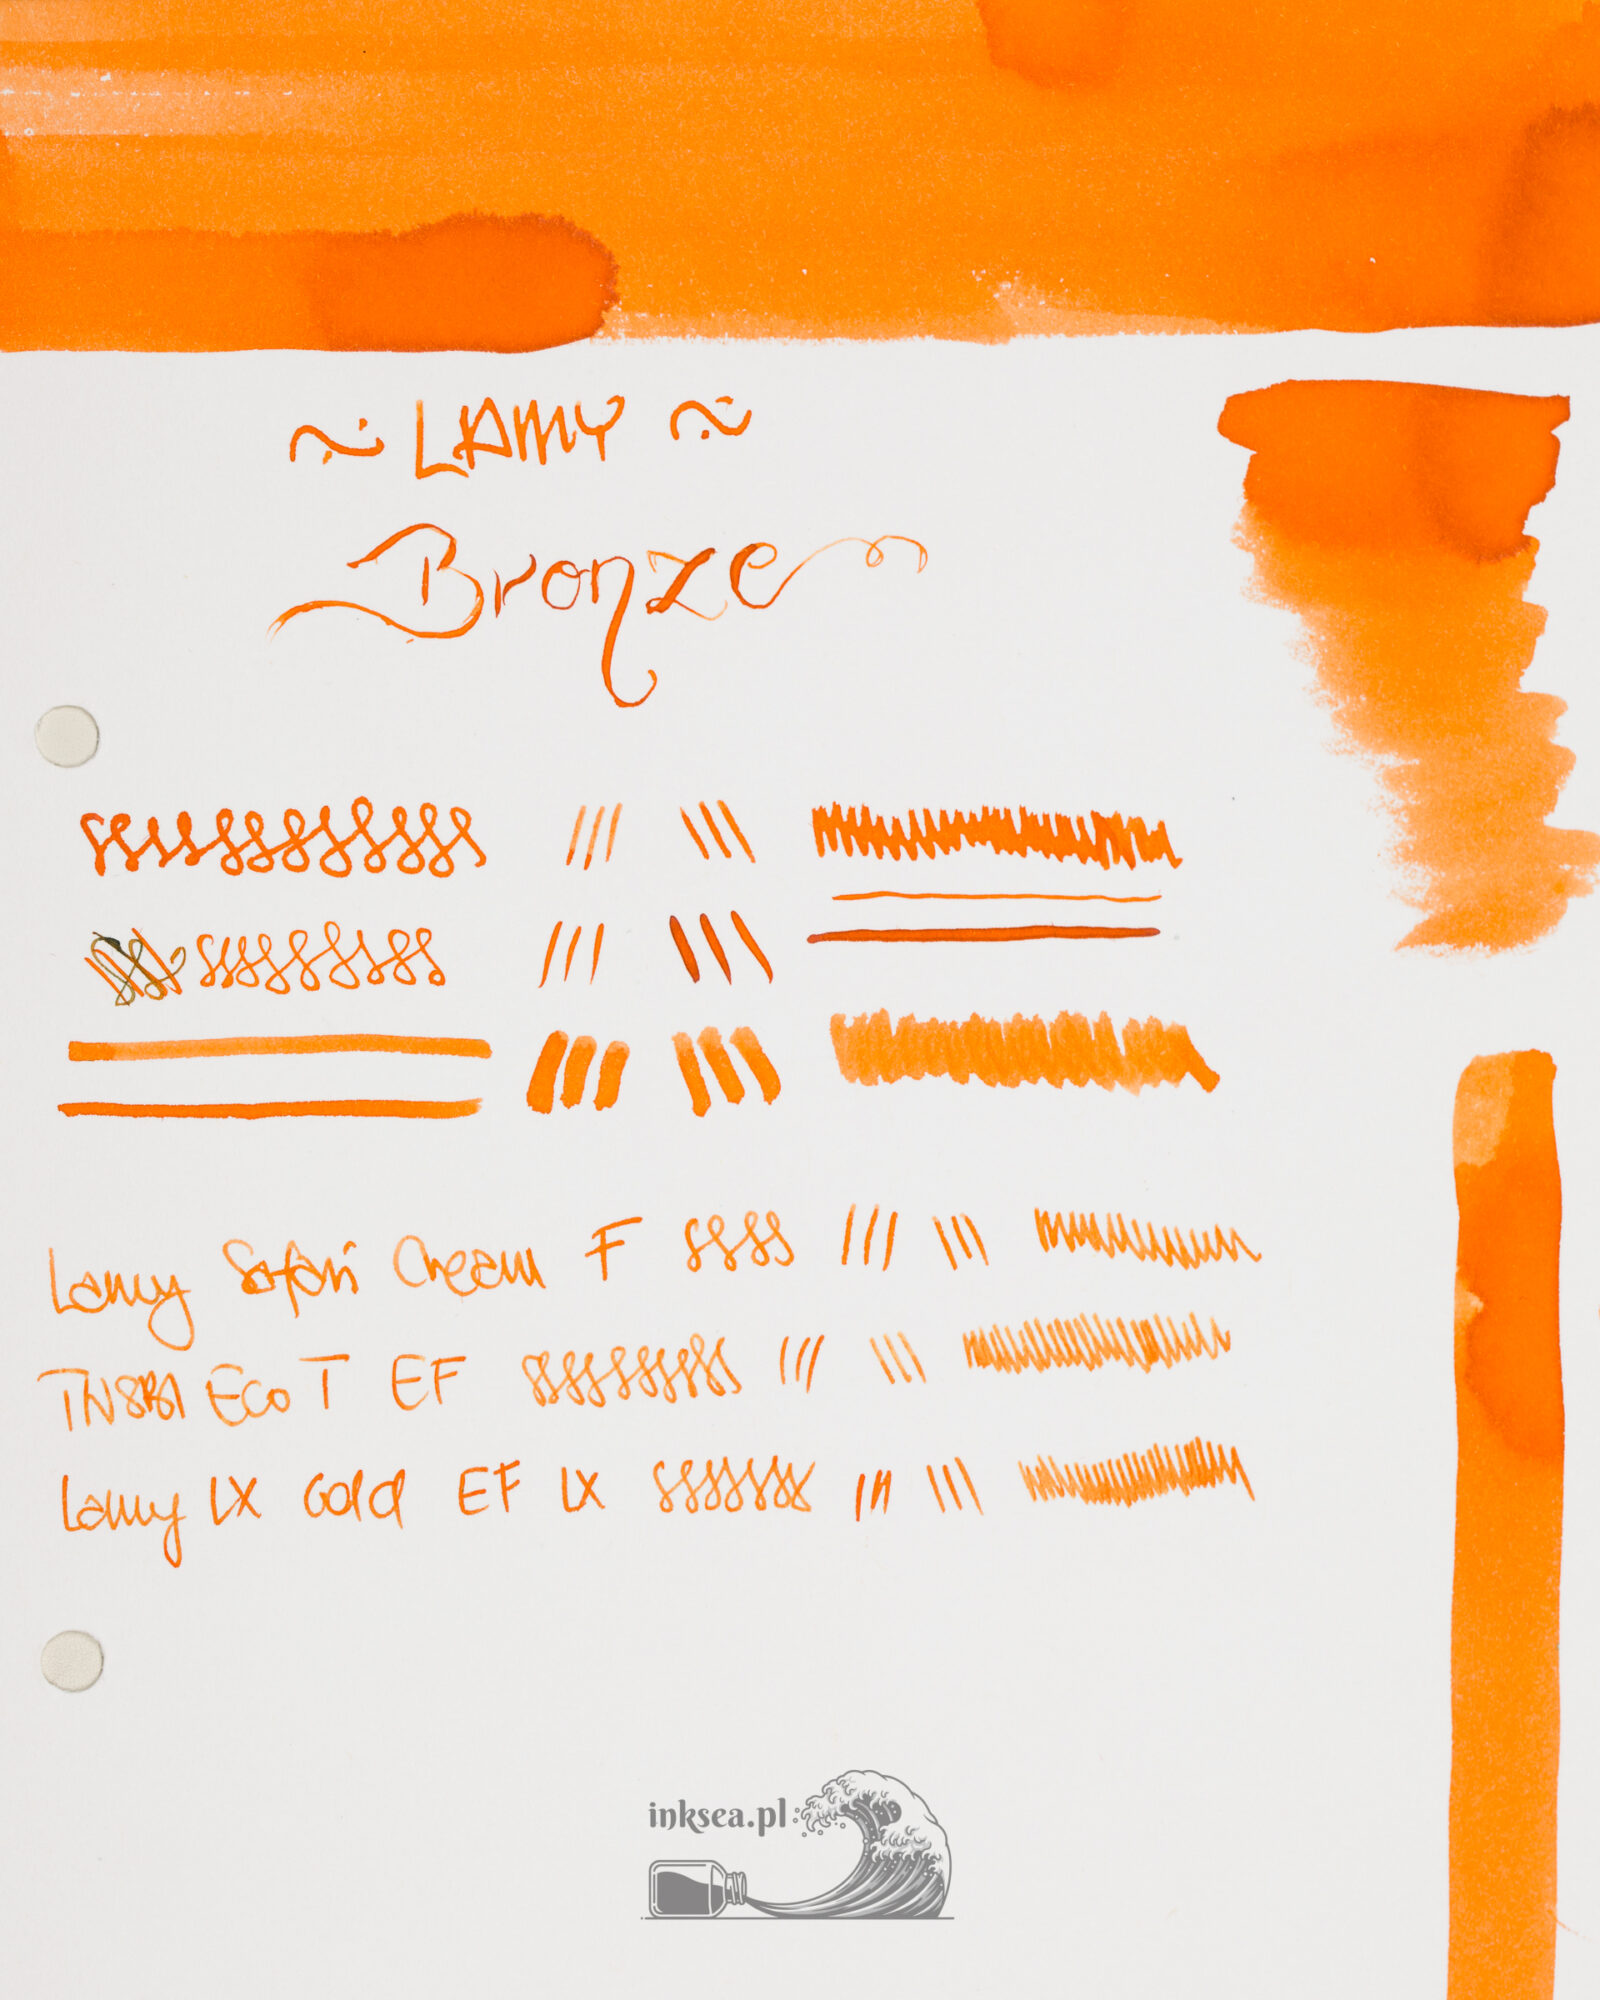 ~ LAMY ~
Bronze
Lamy Safari Cream F
TWSBI Eco T EF
Lamy LX Gold EF LX
inksea.pl